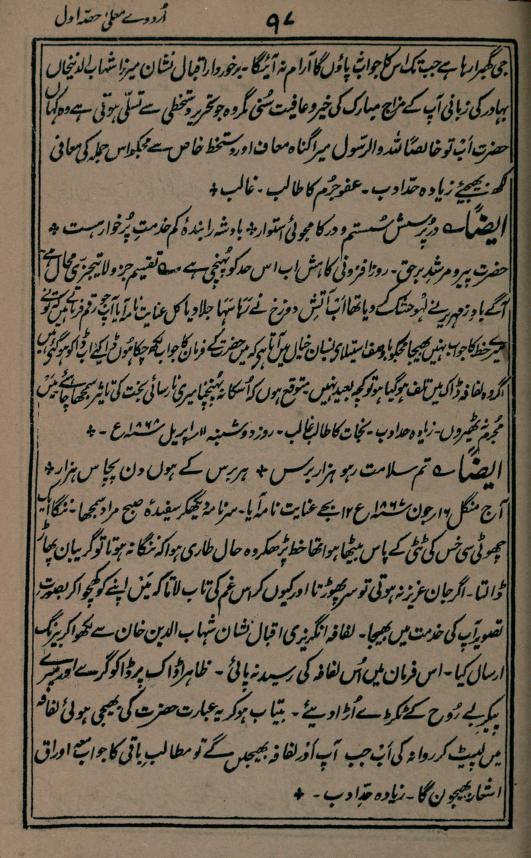 ۹۷ اُردوے معلیٰ حصّہ اول
جی گھبرا رہا ہے جب تک اس کا جواب نہ پاؤں گا آرام نہ آئیگا۔ برخوردار اقبال نشان میرزا شہاب الدینخاں
بہادر کی زبانی آپ کے مزاج مبارک کی خیر و عافیت سُنی مگر وہ جو تحریر دستخطی سے تسلّی ہوتی ہے وہ کہاں
حضرت اب تو خالصاً للہ و الرسول میرا گناہ معاف اور دستخط خاص سے مجھکو اس جملہ کی معافی
لکھ بھیجئے زیادہ حدّ ادب۔ عفو جُرم کا طالب۔ غالب ٭
ایضاً در پرسش سُستم و در کامجوئی استوار ٭ بادشہ را بندۂ کم خدمتِ پُر خوار ہست ٭
حضرت پیر و مرشد برحق۔ روز افزونی کاہش اب اس حد کو پہنچی ہے تقسیم جزو لا یتجزّی محال ہے
آگے باد زمہریر نے لہو خشک کر دیا تھا اب آتش دوزخ نے رہا سہا جلا دیا کل عنایت نامہ آیا آپ جو رقم فرماتے ہیں کہ تو نے
میرے خط کا جواب نہیں بھیجا مجھکو باوصف استیلای نسیان خیال میں آتا ہے کہ میں حضرت کے فرمان کا جواب لکھ چکا ہوں
اگر وہ لفافہ ڈاک میں تلف ہو گیا ہو تو کچھ بعید نہیں متوقع ہوں کہ اُسکا نہ پہنچنا میری نارسائی بخت کی تاثیر سمجھا جائے میں
مجرم نہ ٹھیروں۔ زیادہ حد ادب۔ نجات کا طالب غالب۔ روز دوشنبہ اپریل ع۔ ٭
ایضاً تم سلامت رہو ہزار برس ٭ ہر برس کے ہوں دن پچاس ہزار ٭
آج منگل ۱۶ جون ع ۱۲ بجے عنایت نامہ آیا۔ سرنامہ دیکھکر سفیدۂ صبح مراد سمجھا۔ ننگا ایک
چھوٹی سی خس کی ٹٹی کے پاس بیٹھا ہوا تھا خط پڑھکر وہ حال طاری ہوا کہ ننگا نہ ہوتا تو گریبان پھاڑ
ڈالتا۔ اگر جان عزیز نہ ہوتی تو سر پھوڑتا اور کیوں کر اس غم کی تاب لاتا کہ میں اپنے کو کھچوا کر بصورت
تصویر آپ کی خدمت میں بھیجا۔ لفافہ انگریزی اقبال نشان شہاب الدین خان سے لکھوا کر بیرنگ
ارسال کیا۔ اس فرمان میں اُس لفافہ کی رسید نہ پائی۔ ظاہرا ڈاک پر ڈاکو گرے اور میرے
پیکر بے رُوح کے ٹکڑے اُڑا دیئے۔ بیتاب ہو کر یہ عبارت حضرت کی بھیجی ہوئی لفافہ
میں لپیٹ کر روانہ کی اب جب آپ اور لفافہ بھیجیں گے تو مطالب باقی کا جواب مع اوراق
اشعار بھیجون گا۔ زیادہ حدّ ادب۔ ٭